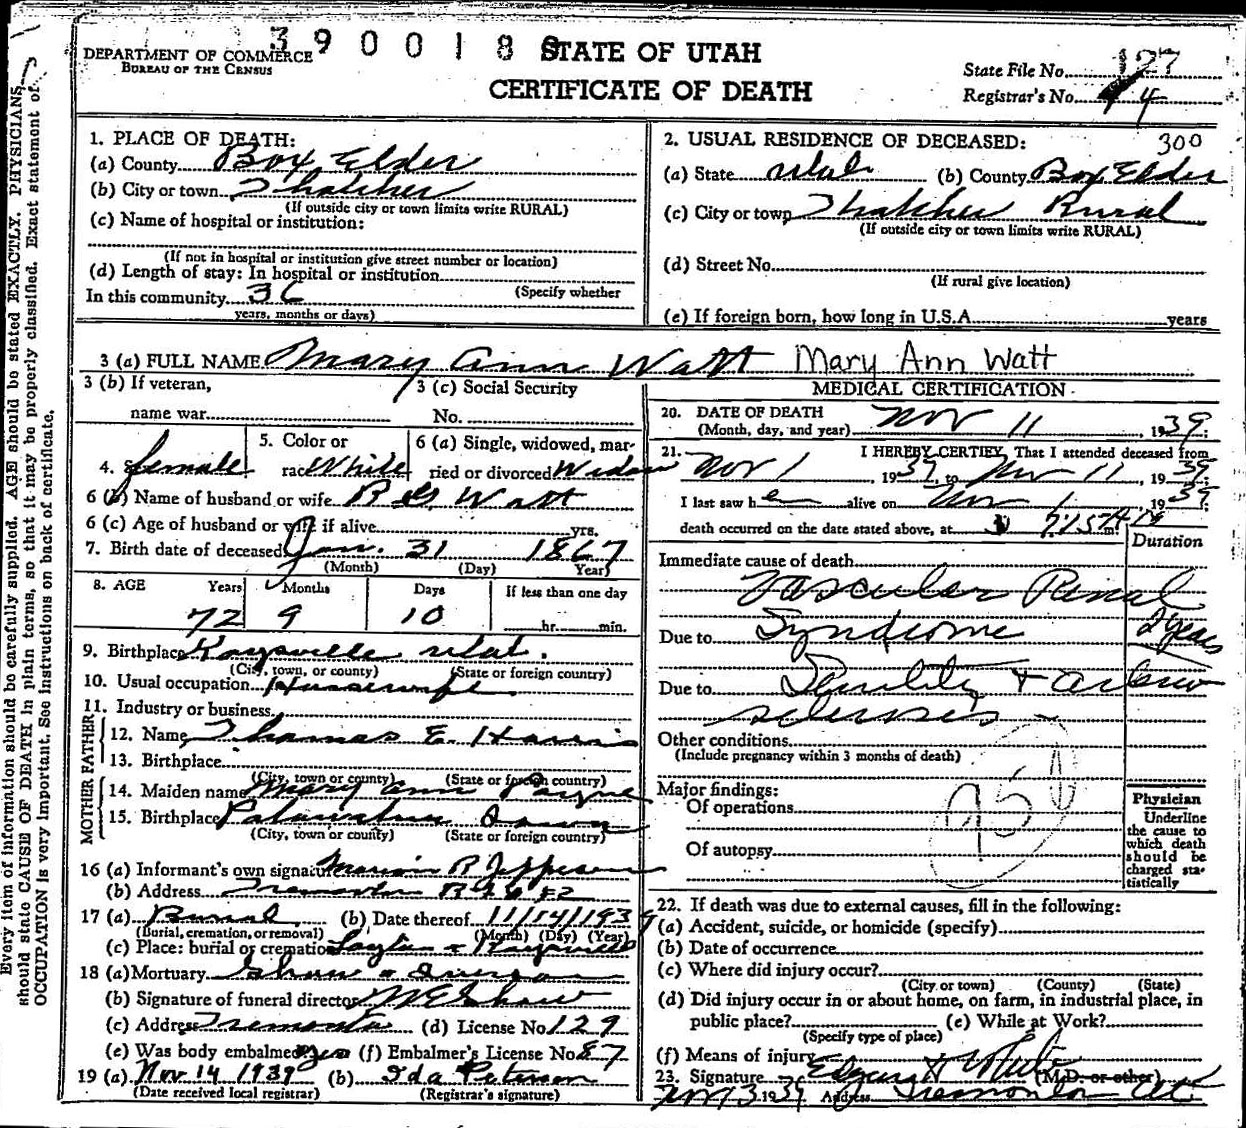 3900188
DEPARTMENT OF COMMERCE
BUREAU OF THE CENSUS
STATE OF UTAH
CERTIFICATE OF DEATH
State File No. 127
Registrar's No. 4
Every item of information should be carefully supplied. AGE should be stated EXACTLY. PHYSICIANS
should state CAUSE OF DEATH in plain terms, so that it may be properly classified. Exact statement of
OCCUPATION is very important. See instructions on back of certificate.
1. PLACE OF DEATH:
(a) County Box Elder
(b) City or town Thatcher
(If outside city or town limits write RURAL)
(c) Name of hospital or institution:
(If not in hospital or institution give street number or location)
(d) Length of stay: In hospital or institution
(Specify whether
In this community 36
years, months or days)
2. USUAL RESIDENCE OF DECEASED: 300
(a) State Utah (b) County Box Elder
(c) City or town Thatcher Rural
(If outside city or town limits write RURAL)
(d) Street No.
(If rural give location)
(e) If foreign born, how long in U.S.A. years
3 (a) FULL NAME Mary Ann Watt Mary Ann Watt
3 (b) If veteran,
name war
3 (c) Social Security
No.
4. Sex female
5. Color or
race White
6 (a) Single, widowed, mar-
ried or divorced Widow
6 (b) Name of husband or wife R G Watt
6 (c) Age of husband or wife if alive yrs.
7. Birth date of deceased Jan. 31 1867
(Month) (Day) Year)
8. AGE Years Months Days If less than one day
72 9 10 hr. min.
9. Birthplace Kaysville Utah.
(City, town, or county) (State or foreign country)
10. Usual occupation Housewife
11. Industry or business
FATHER
12. Name Thomas E. Harris
13. Birthplace
(City, town or county) (State or foreign country)
MOTHER
14. Maiden name Mary Ann Payne
15. Birthplace
(City, town or county) (State or foreign country)
16 (a) Informant's own signature Marion R Jeppesen
(b) Address Tremonton #2
17 (a) Burial (b) Date thereof 11/14/1939
(Burial, cremation, or removal) (Month) (Day) (Year)
(c) Place: burial or cremation Layton & Kaysville
18 (a) Mortuary Shaw & Iverson
(b) Signature of funeral director W E Shaw
(c) Address Tremonton (d) License No. 129
(e) Was body embalmed yes (f) Embalmer's License No. 87
19 (a) Nov 14 1939 (b) Ida Peterson
(Date received local registrar) (Registrar's signature)
MEDICAL CERTIFICATION
20. DATE OF DEATH
(Month, day, and year) Nov 11, 1939.
21. I HEREBY CERTIFY, That I attended deceased from
Nov 1, 1939, to Nov 11, 1939.
I last saw her alive on Nov 1, 1939
death occurred on the date stated above, at 7:15 A m.
Duration
Immediate cause of death
Vascular Renal
Due to Syndrome 2 years
Due to Senility + Arterio
sclerosis
Other conditions
(Include pregnancy within 3 months of death)
Major findings:
Of operations
Of autopsy
Physician
Underline
the cause to
which death
should be
charged sta-
tistically
22. If death was due to external causes, fill in the following:
(a) Accident, suicide, or homicide (specify)
(b) Date of occurrence
(c) Where did injury occur?
(City or town) (County) (State)
(d) Did injury occur in or about home, on farm, in industrial place, in
public place? (e) While at Work?
(Specify type of place)
(f) Means of injury
23. Signature (M.D. or other)
Nov 13 1939 Address Tremonton Ut